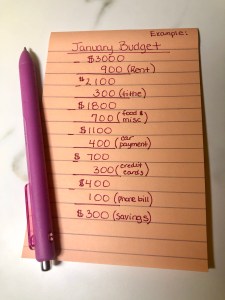 Example:
January Budget
$3000
- 900 (Rent)
$2100
- 300 (tithe)
$1800
- 700 (food & misc)
$1100
- 400 (car payment)
$ 700
- 300 (credit cards)
$400
- 100 (phone bill)
$300 (savings)